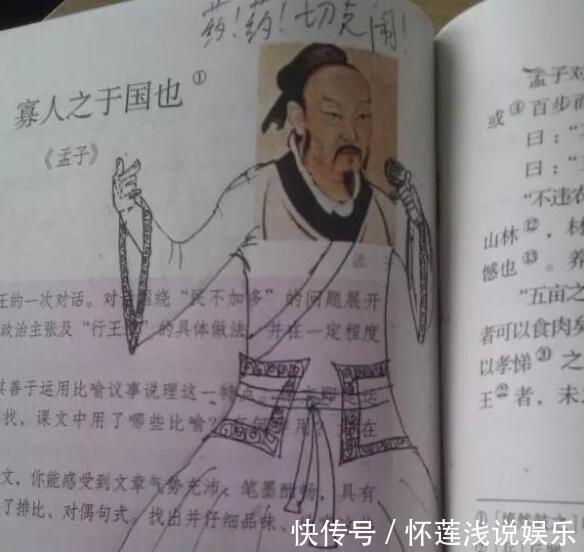 药！药！切克闹！
寡人之于国也①
《孟子》
孟子
王的一次对话。对话围绕“民不加多”的问题展开
政治主张及“行王道”的具体做法，并在一定程度
善于运用比喻议事说理这一特点。
找，课文中用了哪些比喻？
文，你能感受到文章气势充沛、笔墨酣畅，具有
了排比、对偶句式。找出并仔细品味、
孟子对
或④百步而
曰：“
曰：“
“不违农
山林⑫，材
憾也⑬。养
“五亩之
者可以食肉矣
以孝悌⑳之
王㉒者，未
①
快传号／怀莲浅说娱乐